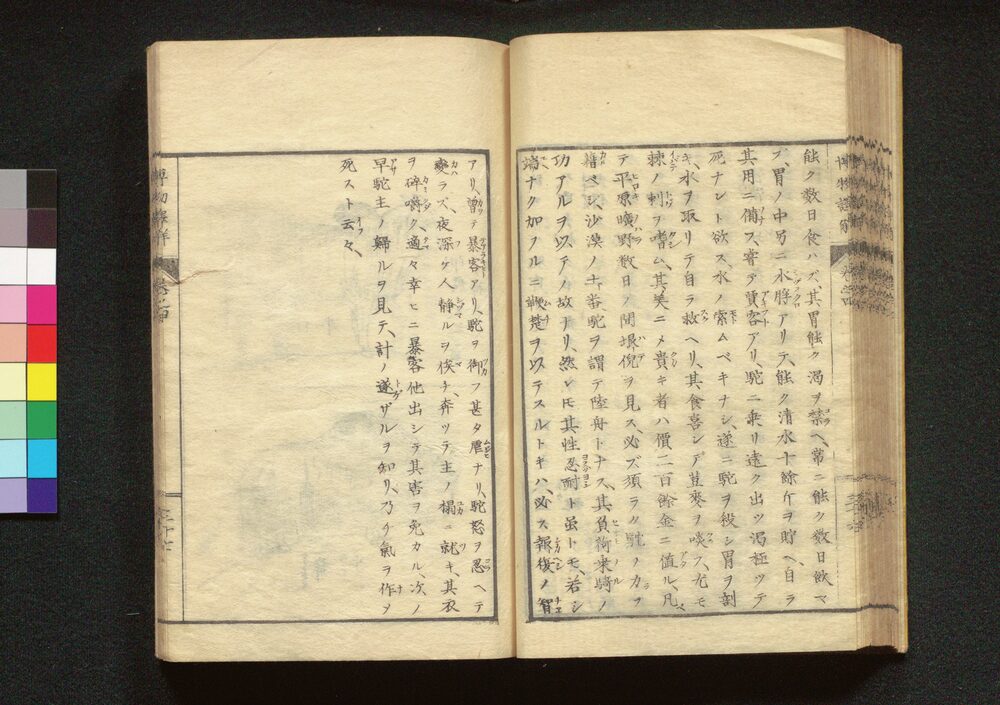 能ク数日食ハズ、其胃能ク渇ヲ禁ヘ、常ニ能ク数日飲マ
ズ、胃ノ中另ニ水脬アリテ、能ク清水十餘斤ヲ貯ヘ、自ラ
其用ニ備ス、嘗テ賈客アリ、駝ニ乗リ遠ク出ツ渇極ツテ
死ナント欲ス、水ノ索ムベキナシ、遂ニ駝ヲ殺シ胃ヲ割
キ、水ヲ取リテ自ラ救ヘリ、其食喜シデ荳麥ヲ啖ス、尤モ
棘ノ刺ヲ嗜ム、其美ニメ貴キ者ハ價二百餘金ニ値ル、凡
テ平原曠野数日ノ間垠倪ヲ見ス、必ズ須ラク駝ノ力ヲ
藉ベシ、沙漠ノ土峇駝ヲ謂テ陸舟トナス、其負荷乗騎ノ
功アルヲ以テノ故ナリ、然レモ其性忍耐ト虽トモ、若シ
端ナク加フルニ鞭楚ヲ以テスルトキハ、必ス報復ノ智
アリ、曽テ暴客アリ、駝ヲ御フ甚タ虐ナリ、駝怒ヲ忍ヘテ
変ラズ、夜深ケ人静ルヲ俟チ、奔ツテ主ノ榻ニ就キ、其衣
ヲ碎嚼ク、適々幸ヒニ暴客他出シテ其害ヲ免カル、次ノ
早駝主ノ歸ルヲ見テ、計ノ遂ザルヲ知リ、乃チ氣ヲ作メ
死スト云々、